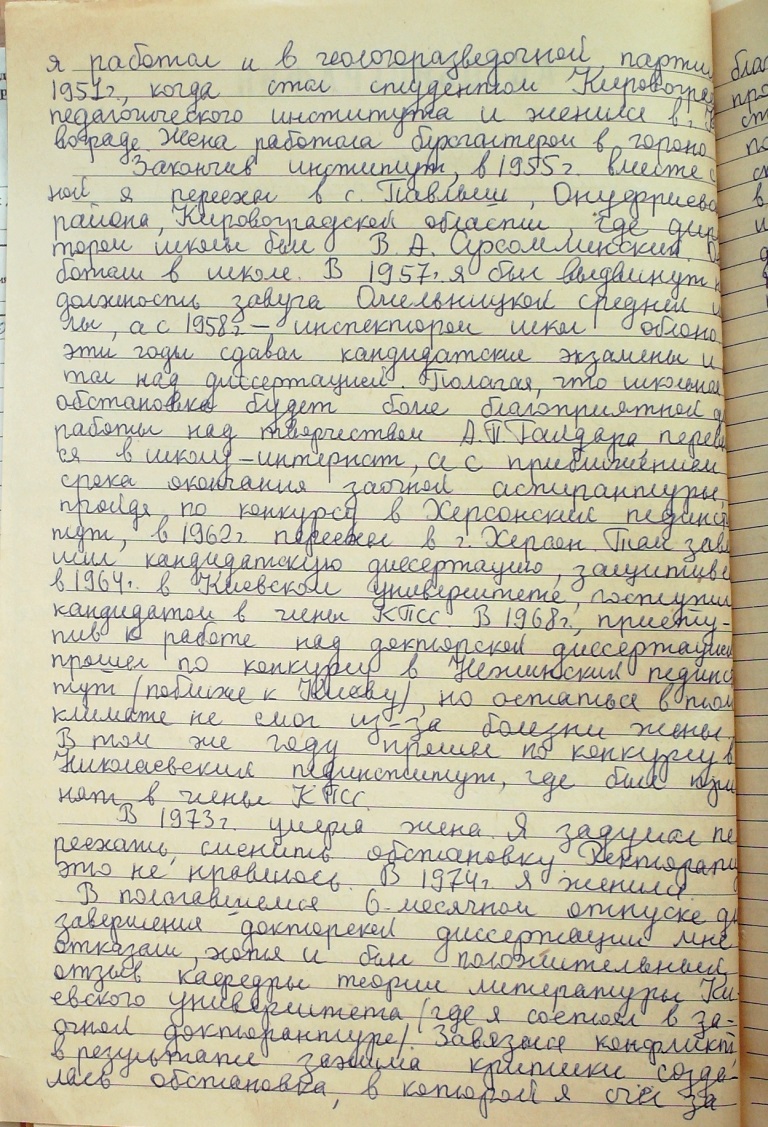 я работал и в геологоразведочной парти
1951г., когда стал студентом Кировогра
педагогического института и женился в г.
вограде. Жена работала бухгалтером в гороно
Закончив институт, в 1955г. вместе с
ной я переехал в с. Павлыш, Онуфриевс
района, Кировоградской области, где дирек
тором школы был В. А. Сухомлинский.
ботал в школе. В 1957г. я был выдвинут н
должность завуча Омельницкой средней ш
лы, а с 1958г. – инспектором школ облоно
эти годы сдавал кандидатские экзамены и
тал над диссертацией. Полагая, что школьная
обстановка будет более благоприятной д
работы над творчеством А.П.Гайдара, переве
ся в школу-интернат, а с приближением
срока окончания заочной аспирантуры,
пройдя по конкурсу в Херсонский пединст
тут, в 1962г. переехал в г. Херсон. Там зав
шил кандидатскую диссертацию, защитив
в 1964г. в Киевском университете, поступил
кандидатом в члены КПСС. В 1968г., присту-
пив к работе над докторской диссертацией
прошел по конкурсу в Нежинский пединс
тут (поближе к Киеву), но остаться в том
климате не смог из-за болезни жены.
В том же году прошел по конкурсу в
Николаевский пединститут, где был при
нят в члены КПСС.
В 1973г. умерла жена. Я задумал пе
реехать, сменить обстановку. Ректорату
это не нравилось. В 1974г. я женился
В полагавшемся 6-месячном отпуске дл
завершения докторской диссертации мне
отказали, хотя и был положительный
отзыв кафедры теории литературы Ки-
евского университета (где я состоял в за-
очной докторантуре). Завязался конфликт,
в результате зажима критики созда-
лась обстановка, в которой я счел за